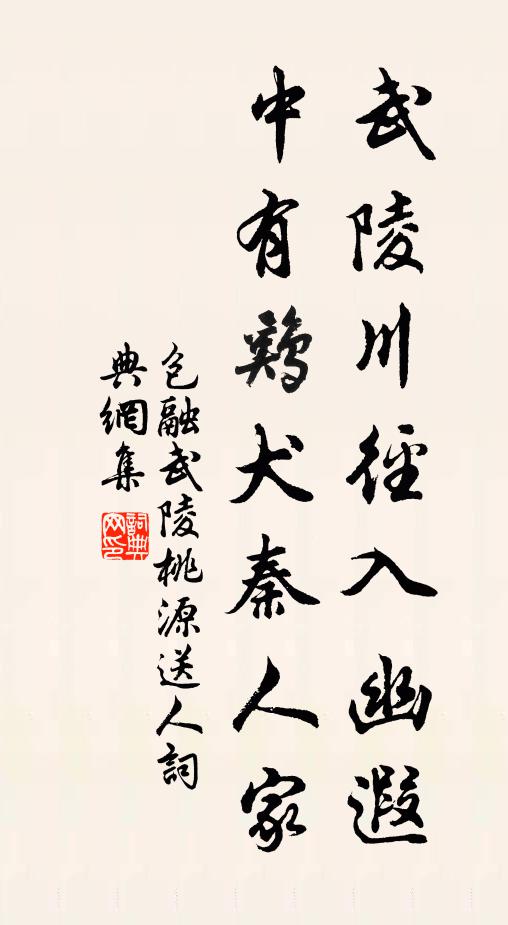 武陵川徑入幽遐
中有鷄犬秦人家
包融武陵桃源送人詞
典網集
詞典
网印